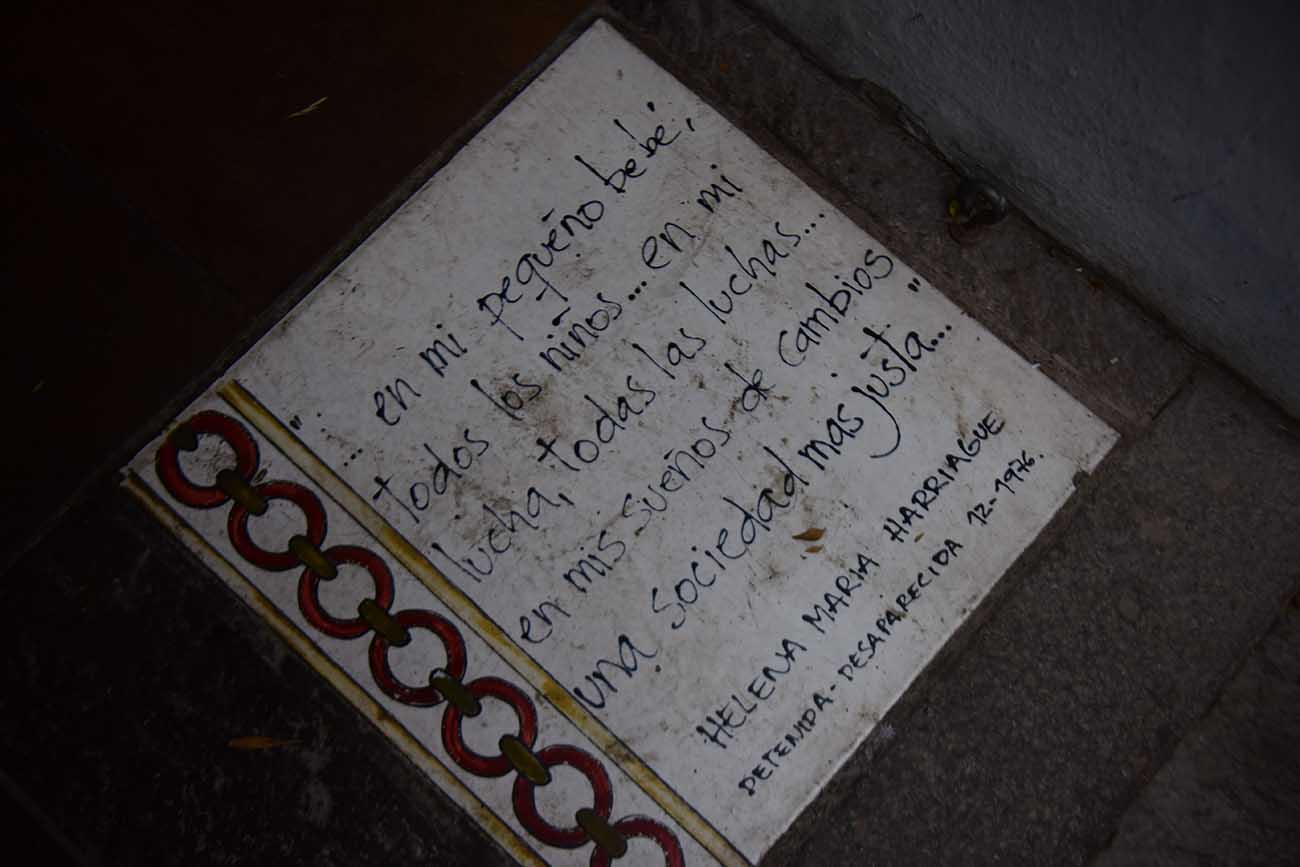 "... en mi pequeño bebé,
todos los niños... en mi
lucha, todas las luchas...
en mis sueños de cambios
una sociedad mas justa..."
HELENA MARIA HARRIAGUE
DETENIDA-DESAPARECIDA 12-1976.